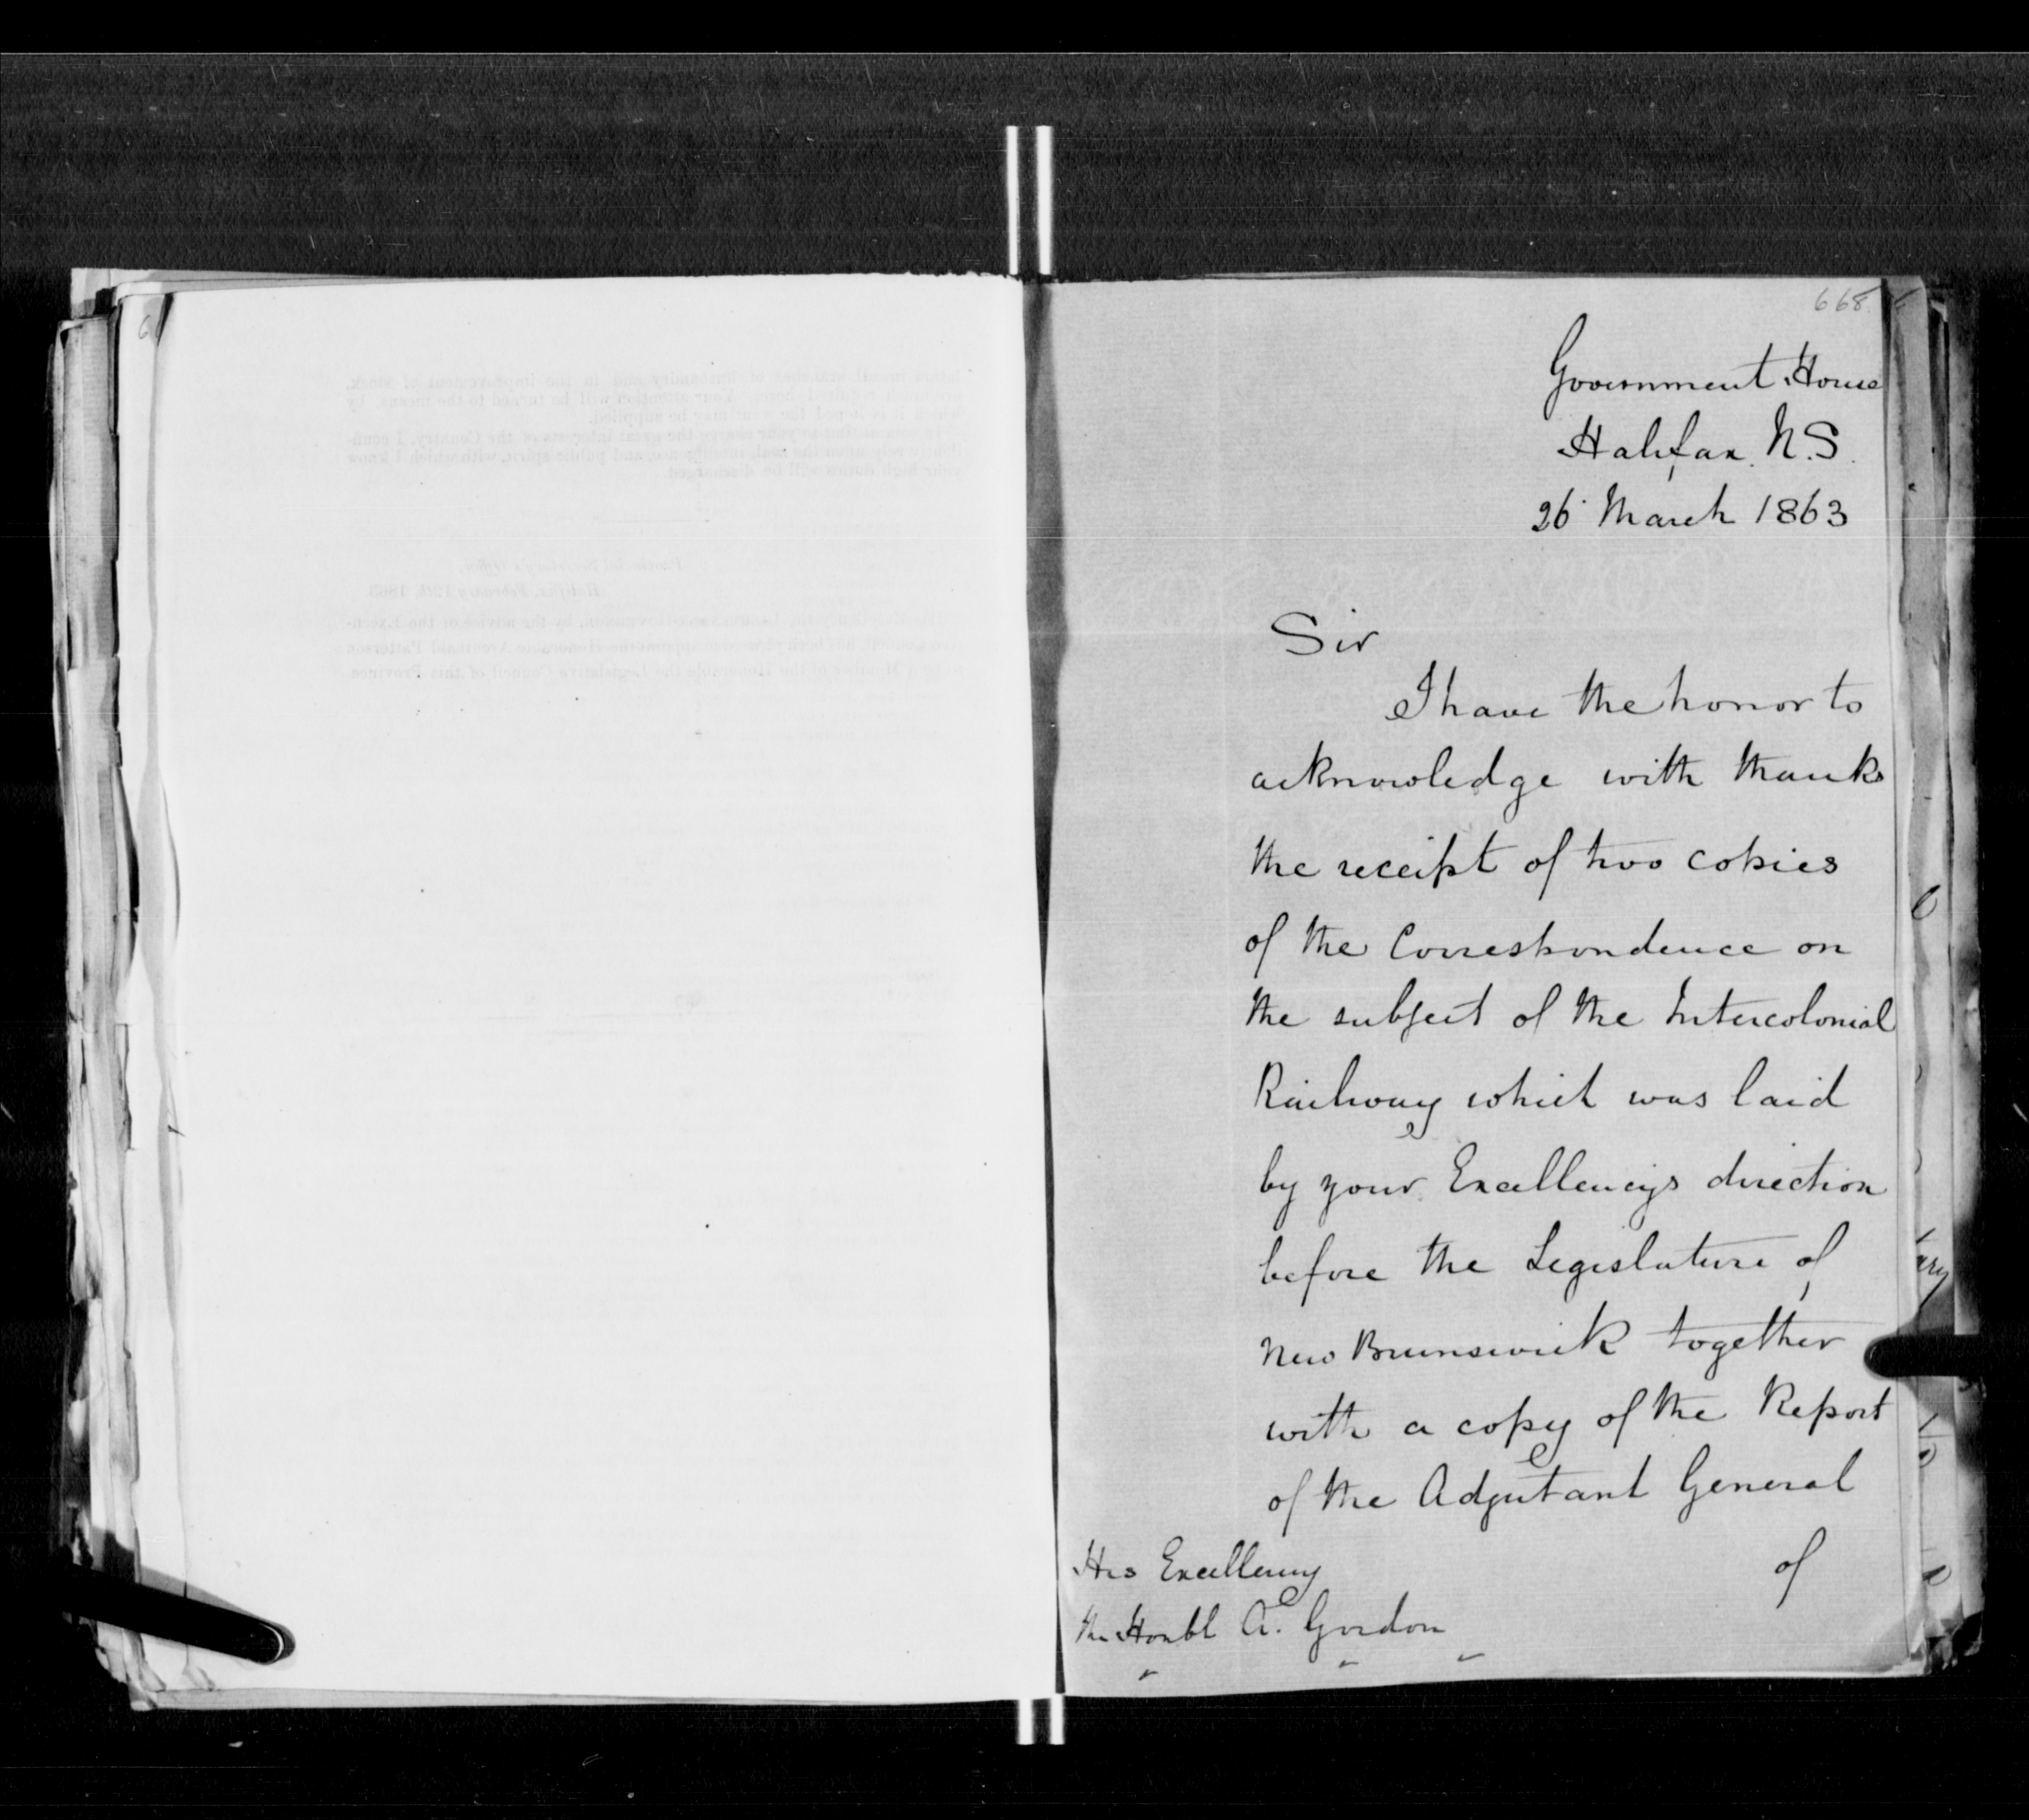 668
Government House
Halifax. N.S.
26 March 1863
Sir
I have the honor to
acknowledge with thanks
the receipt of two copies
of the Correspondence on
the subject of the Intercolonial
Railway which was laid
by your Excellencys direction
before the Legislature of
New Brunswick together
with a copy of the Report
of the Adjutant General
of
His Excellency
the Honbl A. Gordon